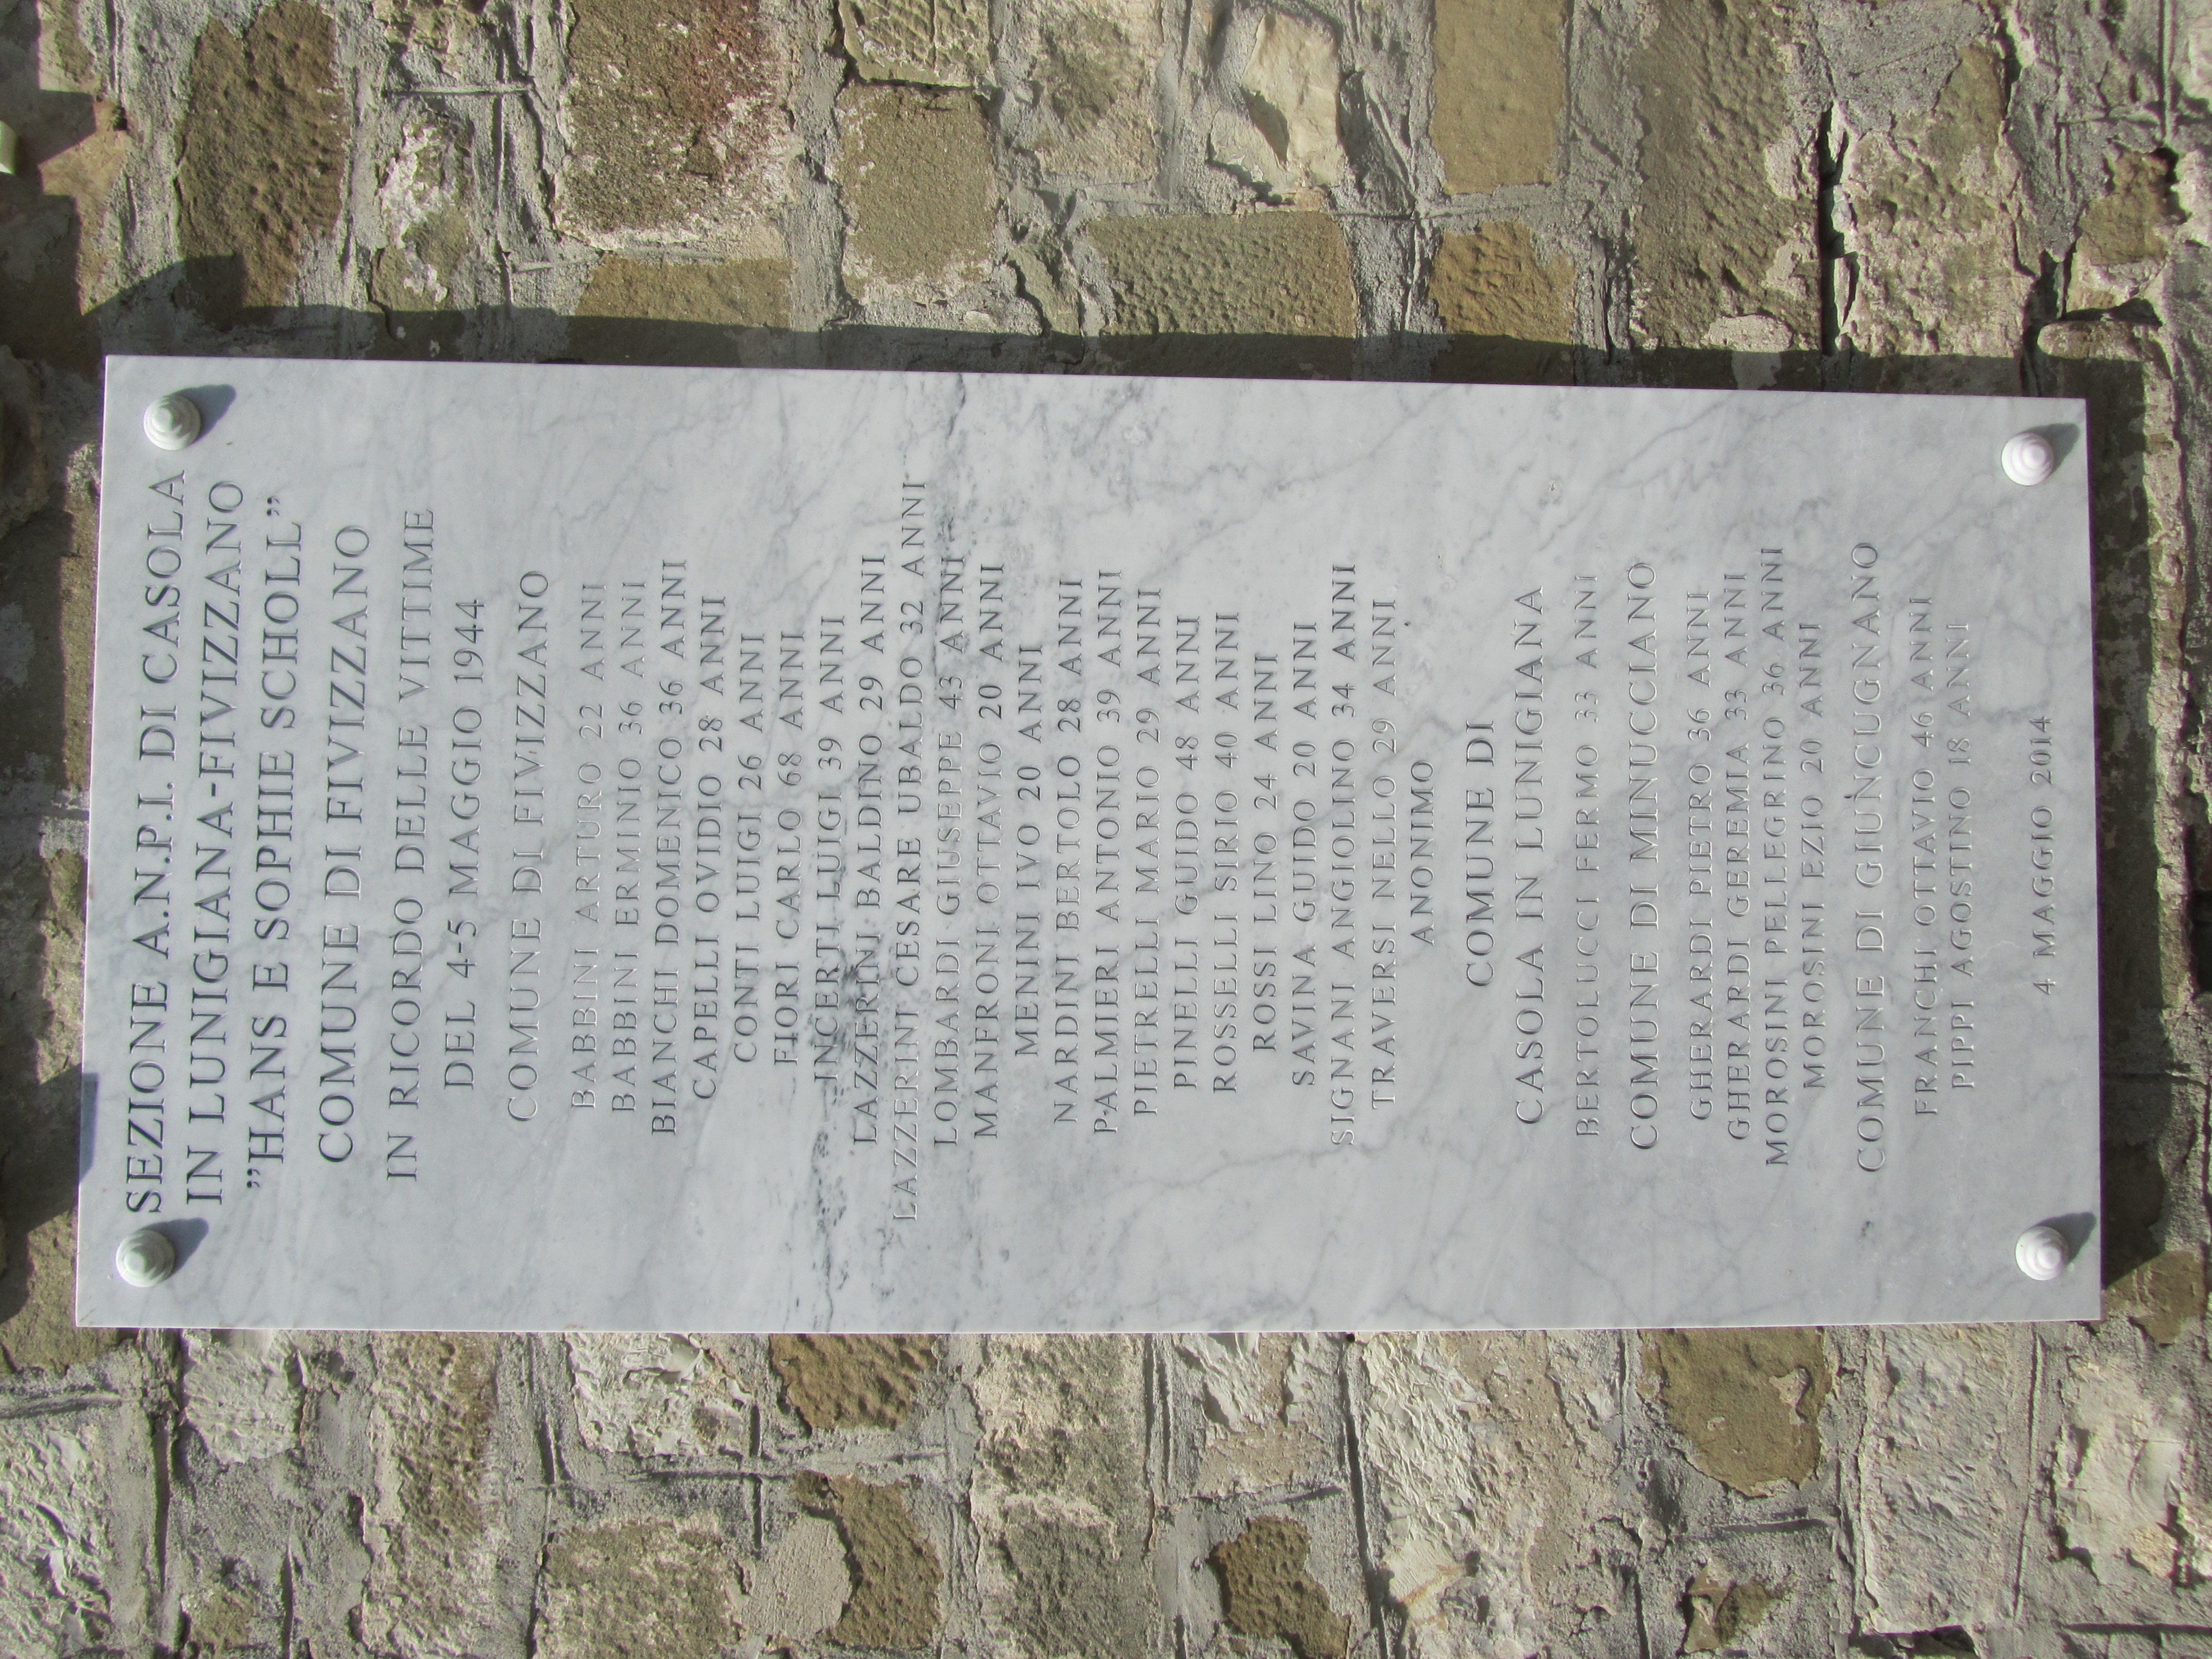 SEZIONE A.N.P.I. DI CASOLA
IN LUNIGIANA-FIVIZZANO
"HANS E SOPHIE SCHOLL"
COMUNE DI FIVIZZANO
IN RICORDO DELLE VITTIME
DEL 4-5 MAGGIO 1944
COMUNE DI FIVIZZANO
BABBINI ARTURO 22 ANNI
BABBINI ERMINIO 36 ANNI
BIANCHI DOMENICO 36 ANNI
CAPELLI OVIDIO 28 ANNI
CONTI LUIGI 26 ANNI
FIORI CARLO 68 ANNI
INCERTI LUIGI 39 ANNI
LAZZERINI BALDINO 29 ANNI
LAZZERINI CESARE UBALDO 32 ANNI
LOMBARDI GIUSEPPE 43 ANNI
MANFRONI OTTAVIO 20 ANNI
MENINI IVO 20 ANNI
NARDINI BERTOLO 28 ANNI
PALMIERI ANTONIO 39 ANNI
PIETRELLI MARIO 29 ANNI
PINELLI GUIDO 48 ANNI
ROSSELLI SIRIO 40 ANNI
ROSSI LINO 24 ANNI
SAVINA GUIDO 20 ANNI
SIGNANI ANGIOLINO 34 ANNI
TRAVERSI NELLO 29 ANNI
ANONIMO
COMUNE DI
CASOLA IN LUNIGIANA
BERTOLUCCI FERMO 33 ANNI
COMUNE DI MINUCCIANO
GHERARDI PIETRO 36 ANNI
GHERARDI GEREMIA 33 ANNI
MOROSINI PELLEGRINO 36 ANNI
MOROSINI EZIO 20 ANNI
COMUNE DI GIUNCUGNANO
FRANCHI OTTAVIO 46 ANNI
PIPPI AGOSTINO 18 ANNI
4 MAGGIO 2014